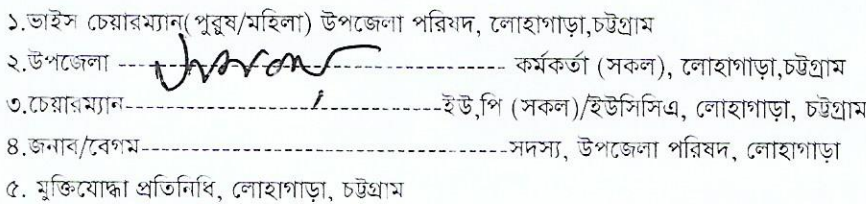 ১.ভাইস চেয়ারম্যান(পুরুষ/মহিলা) উপজেলা পরিষদ, লোহাগাড়া,চট্টগ্রাম
২.উপজেলা ------------------------------------ কর্মকর্তা (সকল), লোহাগাড়া,চট্টগ্রাম
৩.চেয়ারম্যান------------------------------------ইউ,পি (সকল)/ইউসিসিএ, লোহাগাড়া, চট্টগ্রাম
৪.জনাব/বেগম------------------------------------সদস্য, উপজেলা পরিষদ, লোহাগাড়া
৫. মুক্তিযোদ্ধা প্রতিনিধি, লোহাগাড়া, চট্টগ্রাম